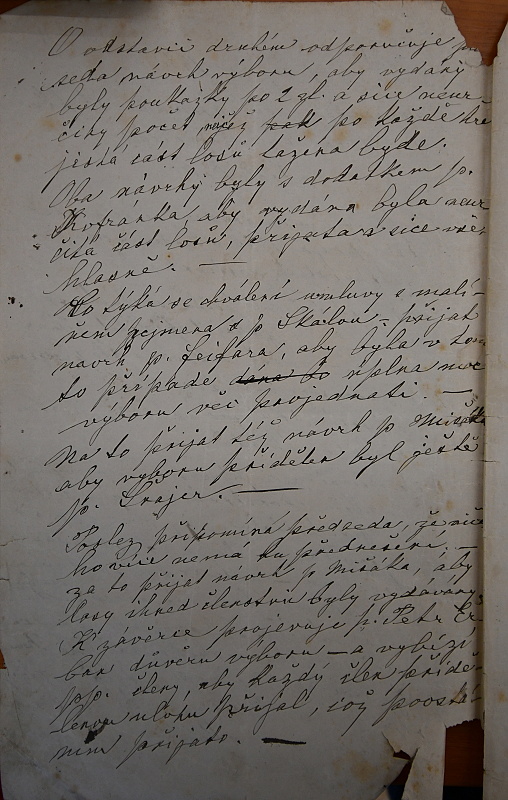 O odstavci druhém odporučuje př
seda návrh výboru, aby vydány
byly poukázky po 2 zl. a sice neur
čitý počet po každé kte
jestá část losů tažena bude.
Oba návrhy byly s dodatkem p.
aby vydána byla neur
čitá část losů, přijata a sice vše
hlasně. —
Co týká se chválení umluvy s malí-
řem zejmena s p. Skálou – přijat
navrh p. Fejfara, aby byla v tom
to případe dána to uplna moc
výboru věc projednati. —
Na to přijat též návrh p. Mišáka
aby vyboru přidělen byl ještě
p. Šrajer. —
Posléz připomíná předseda, že více
ho více nemá ku přednešení, —
za to přijat návrh p. Mišáka, aby
losy ihned členstvu byly vydávány
K závěrce projevuje p. Petr Er
ben důvěru výboru – a vybízí
pp. členy, aby každý člen přidě-
lenou ulohu přijal, což povstá
ním přijato. —